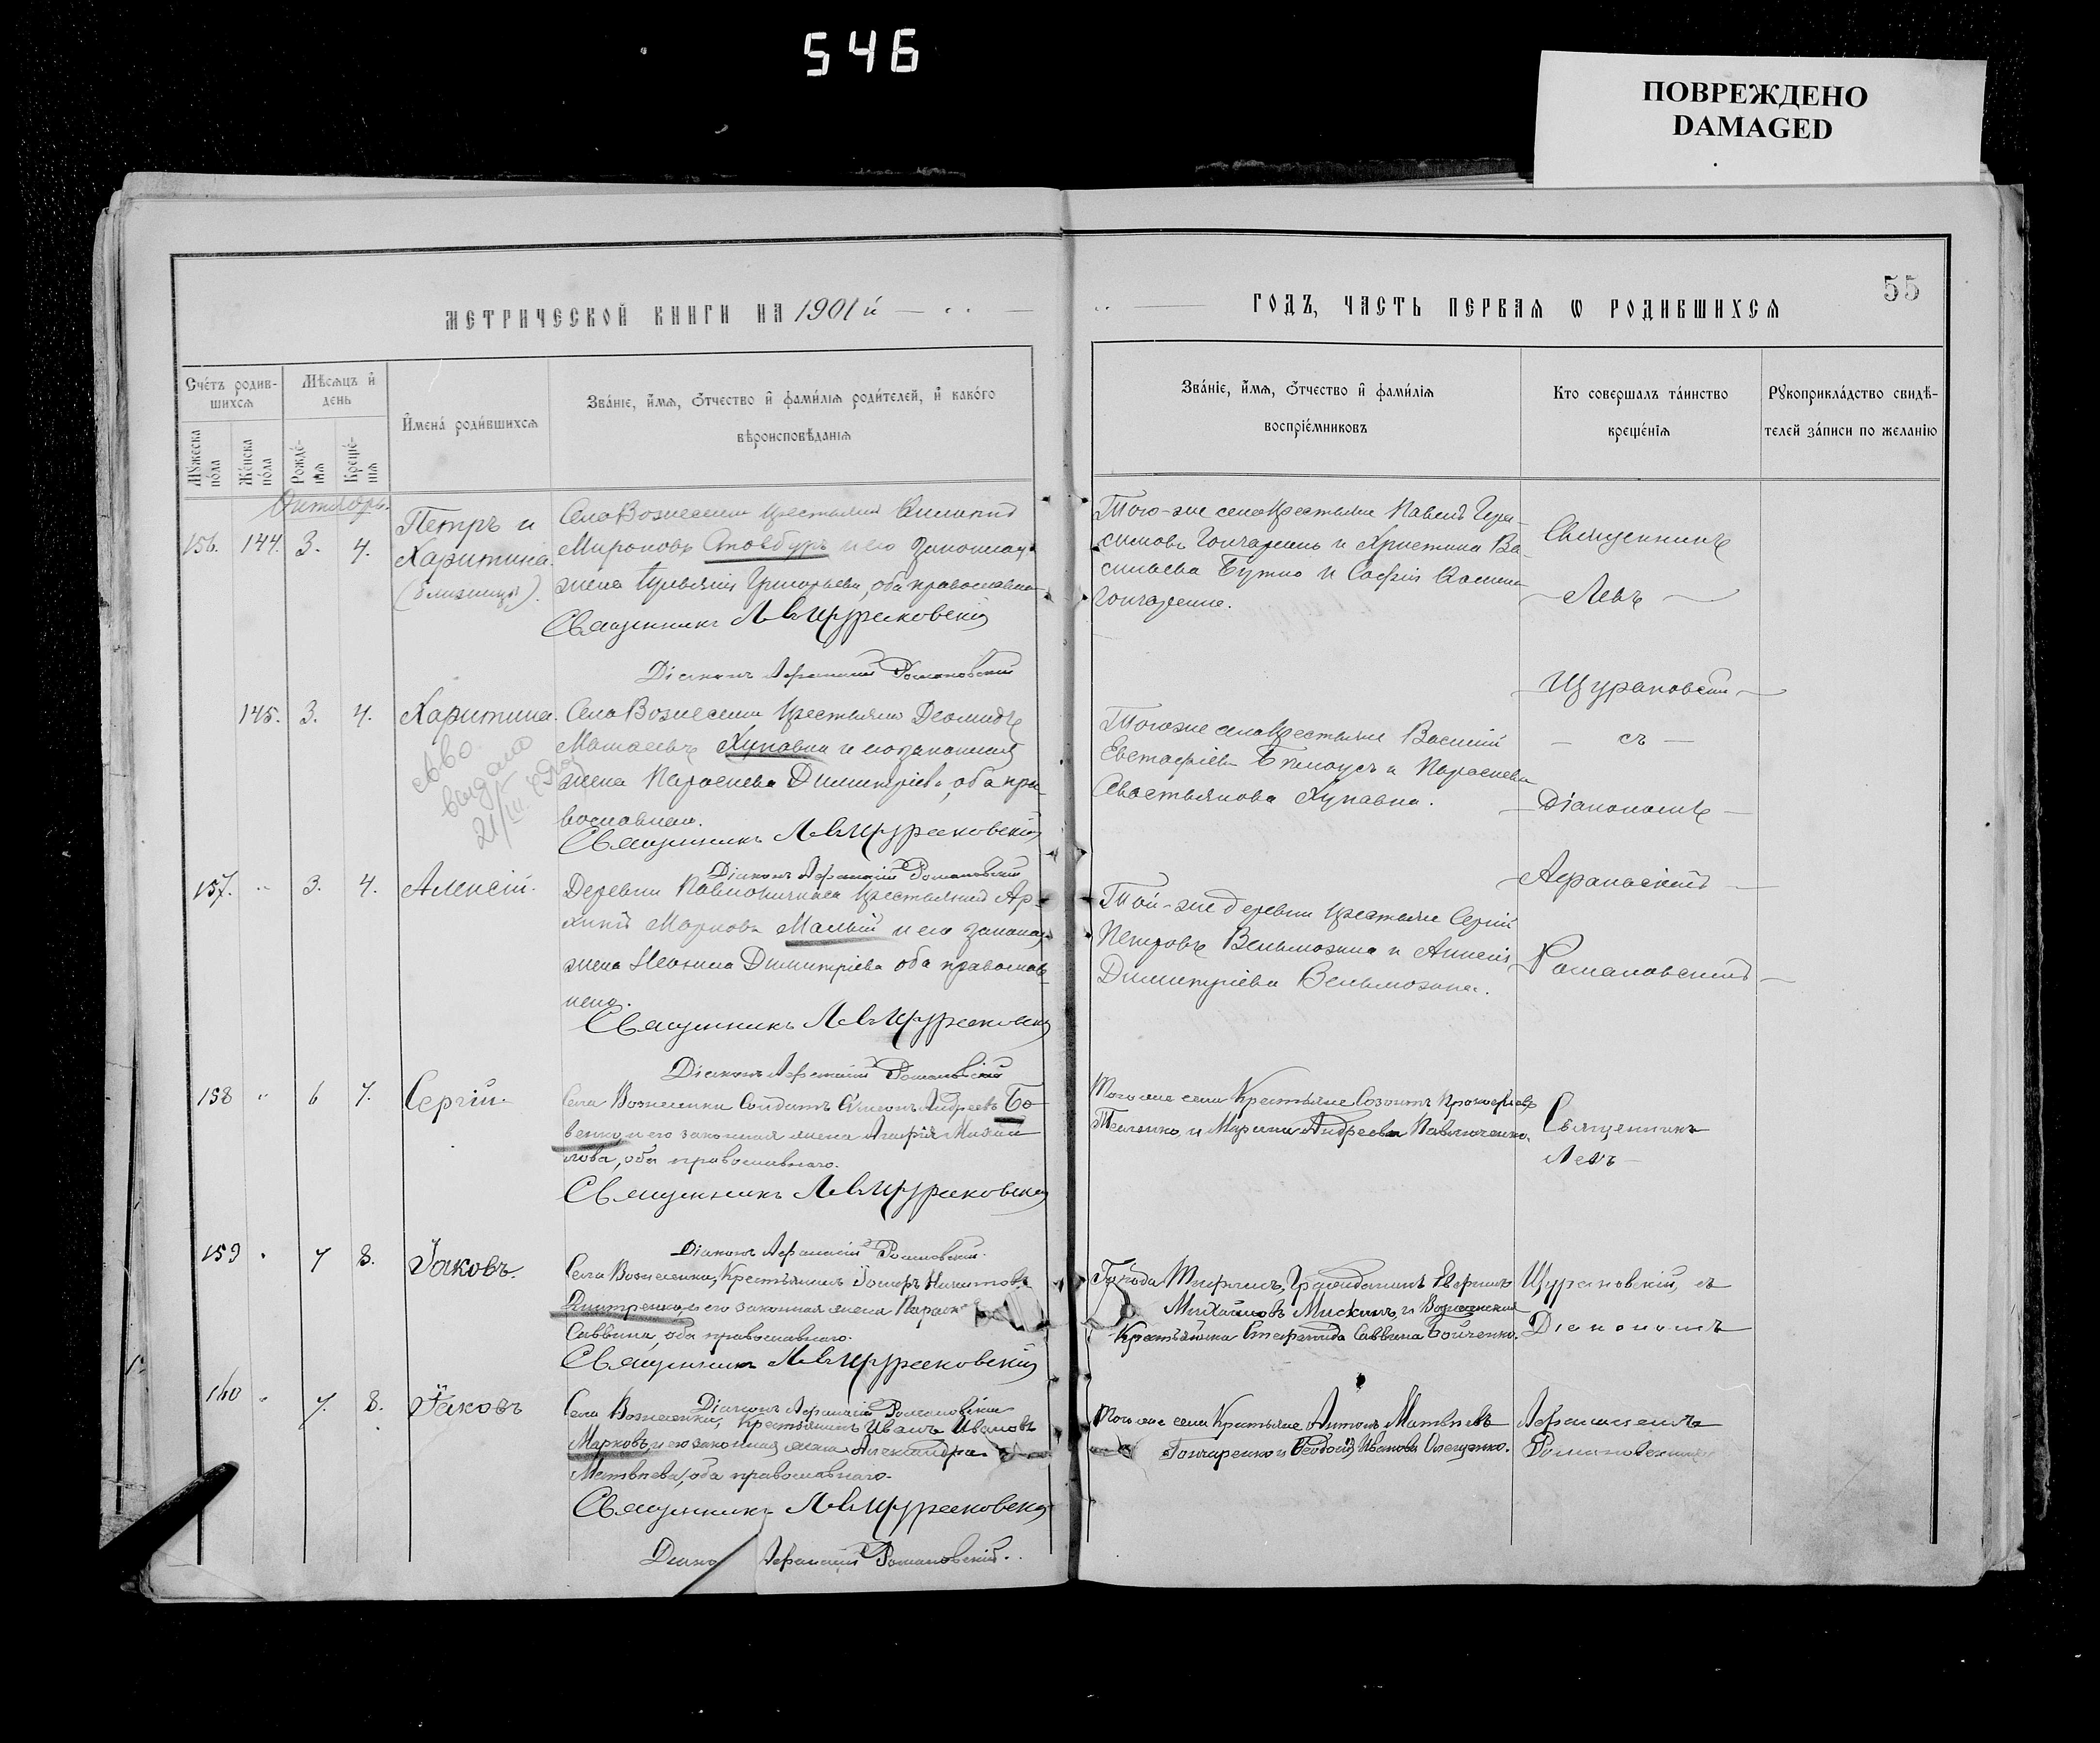 546
ПОВРЕЖДЕНО
DAMAGED
55
МЕТРИЧЕСКОЙ КНИГИ НА 1901 й
ГОДЪ, ЧАСТЬ ПЕРВАѦ Ѡ РОДИВШИХСѦ
Сче́тъ родив-
шихсѧ
Мꙋжеска
по́ла
Же́нска
по́ла
Мѣ́сѧцъ и҆
день
Рожде́-
нїѧ
Креще́-
нїѧ
И҆мена̀ роди́вшихсѧ
Зва́нїе, и҆́мѧ, ѻ҆́тчество и҆ фами́лїѧ роди́телей, и҆ како́го
вѣроисповѣ́данїѧ
Зва́нїе, и҆́мѧ, ѻ҆́тчество и҆ фами́лїѧ
воспрїе́мниковъ
Кто соверша́лъ та́инство
креще́нїѧ
Рꙋкоприкла́дство свидѣ́-
телей за́писи по жела́нїю
Октябрь.
156. 144. 3. 4.
Петръ и
Харитина.
(близнецы).
Села Вознесенки крестьянинъ
Мироновъ Столбуръ и его законная
жена Григорьева, оба православна
Священникъ Левъ Щураковскій
Діаконъ Афанасій Романовскій
Того-же села крестьяне Павелъ Гера-
симовъ Гончаренко и Христина Ва-
сильева Бутко и Софія
Гончаренко.
Священникъ
Левъ
Щураковскій
съ
Діакономъ
Афанасіемъ
Романовскимъ
145. 3. 4. Харитина.
выдано
21/III
Села Вознесенки крестьянинъ Деомидъ
Хупавка и его законная
жена Параскева Димитріева, оба пра-
вославнаго.
Священникъ Левъ Щураковскій
Діаконъ Афанасій Романовскій
Того же села крестьяне Василій
Евстафіевъ Билоусъ и Параскева
Севастьянова Хупавка.
157. " 3. 4. Алексій.
Деревни крестьянинъ Ар-
хипъ Марковъ Малый и его законная
жена Димитріева оба православ-
наго.
Священникъ Левъ Щураковскій
Діаконъ Афанасій Романовскій
Той-же деревни крестьяне Сергій
Петровъ Вельможка и
Димитріева Вельможка.
158 " 6 7. Сергій.
Села Вознесенки Солдатъ Симеонъ Андреевъ Бо-
венко, и его законная жена Агафія Михай
лова, оба православнаго.
Священникъ Левъ Щураковскій
Діаконъ Афанасій Романовскій.
Того же села Крестьяне Созонтъ Прокофіевъ
и Марина Андреева Павлюченко.
Священникъ
Левъ
159 " 7 8. Іаковъ.
Села Вознесенки, Крестьянинъ Никитовъ
Дмитренко, и его законная жена Параск
Саввина, оба православнаго.
Священникъ Левъ Щураковскій
Діаконъ Афанасій Романовскій
Города
Михайловъ Мискинъ, и Вознесенки
Крестьянка Стефанида Саввина Бойченко.
Щураковскій, съ
Діакономъ
160 " 7. 8. Іаковъ
Села Вознесенки, Крестьянинъ Иванъ Ивановъ
Марковъ, и его законная жена Александра
Матвѣева, оба православнаго.
Священникъ Левъ Щураковскій
Діако Афанасій Романовскій.
Того же села Крестьяне Антонъ Матвѣевъ
Гончаренко и Ѳеодосія Иванова Онещенко.
Афанасіемъ
Романовскимъ